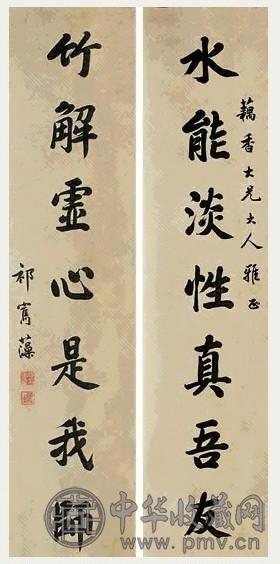 藕香大兄大人雅正
水能淡性真吾友
竹解虛心是我師
祁寯藻
中华收藏网
www.pmv.cn